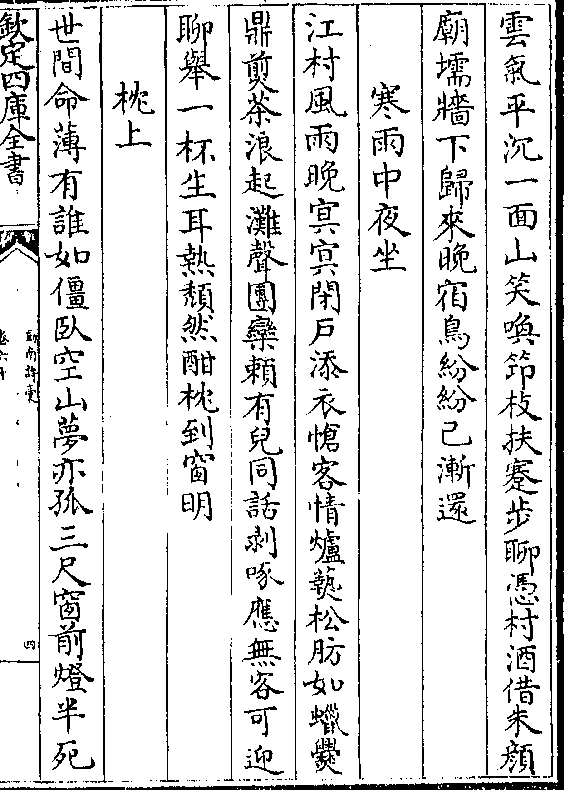 雲氣平沉一面山笑喚笻枝扶蹇步聊憑村酒借朱顔
廟壖牆下歸來晚宿鳥紛紛已漸還
寒雨中夜坐
江村風雨晚冥冥閉戶添衣愴客情爐爇松肪如蠟㸑
鼎煎茶浪起灘聲團欒賴有兒同話剥啄應無客可迎
聊舉一杯生耳熱頽然酣枕到窗明
枕上
世間命薄有誰如僵臥空山夢亦孤三尺窗前燈半死
欽定四庫全書
四